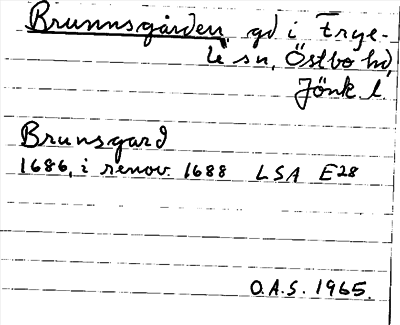 Brunnsgården, gd i Frye-
le sn, Östbo hd,
Jönk l.
Brunsgard
1686, i renov. 1688 LSA E28
O.A.S. 1965.